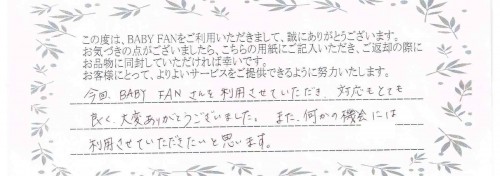 この度は、BABY FANをご利用いただきまして、誠にありがとうございます。
お気づきの点がございましたら、こちらの用紙にご記入いただき、ご返却の際に
お品物に同封していただければ幸いです。
お客様にとって、よりよいサービスをご提供できるように努力いたします。
今回、BABY FANさんを利用させていただき、対応もとても
良く、大変ありがとうございました。また、何かの機会には
利用させていただきたいと思います。